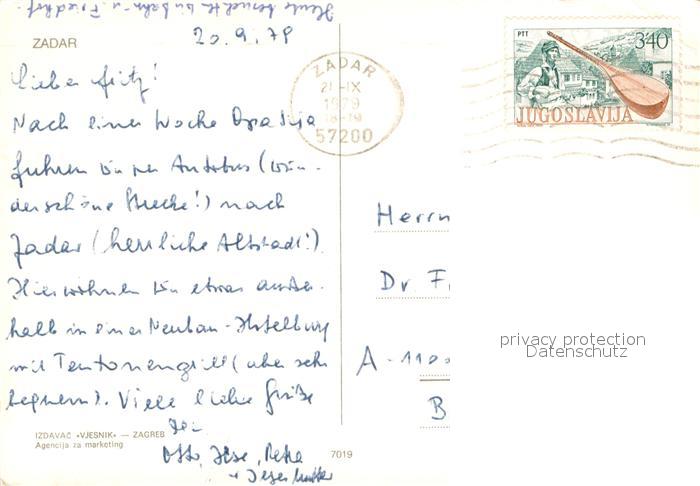 Heute besuchten wir Bahn- u. Friedhof.
ZADAR
20.9.79
Lieber Fritz!
Nach einer Woche Opatija
fuhren wir per Autobus (wun-
derschöne Strecke!) nach
Zadar (herrliche Altstadt!).
Hier wohnen wir etwas außer-
halb in einer Neubau-Hotelburg
mit Teutonengrill (aber sehr
bequem). Viele liebe Grüße
Otto, Ilse,
ZADAR
21-IX
1979
18-19
57200
PTT
3.40
JUGOSLAVIJA
Herrn
Dr F
A-1100
B
privacy protection
Datenschutz
IZDAVAČ «VJESNIK» — ZAGREB
Agencija za marketing
7019